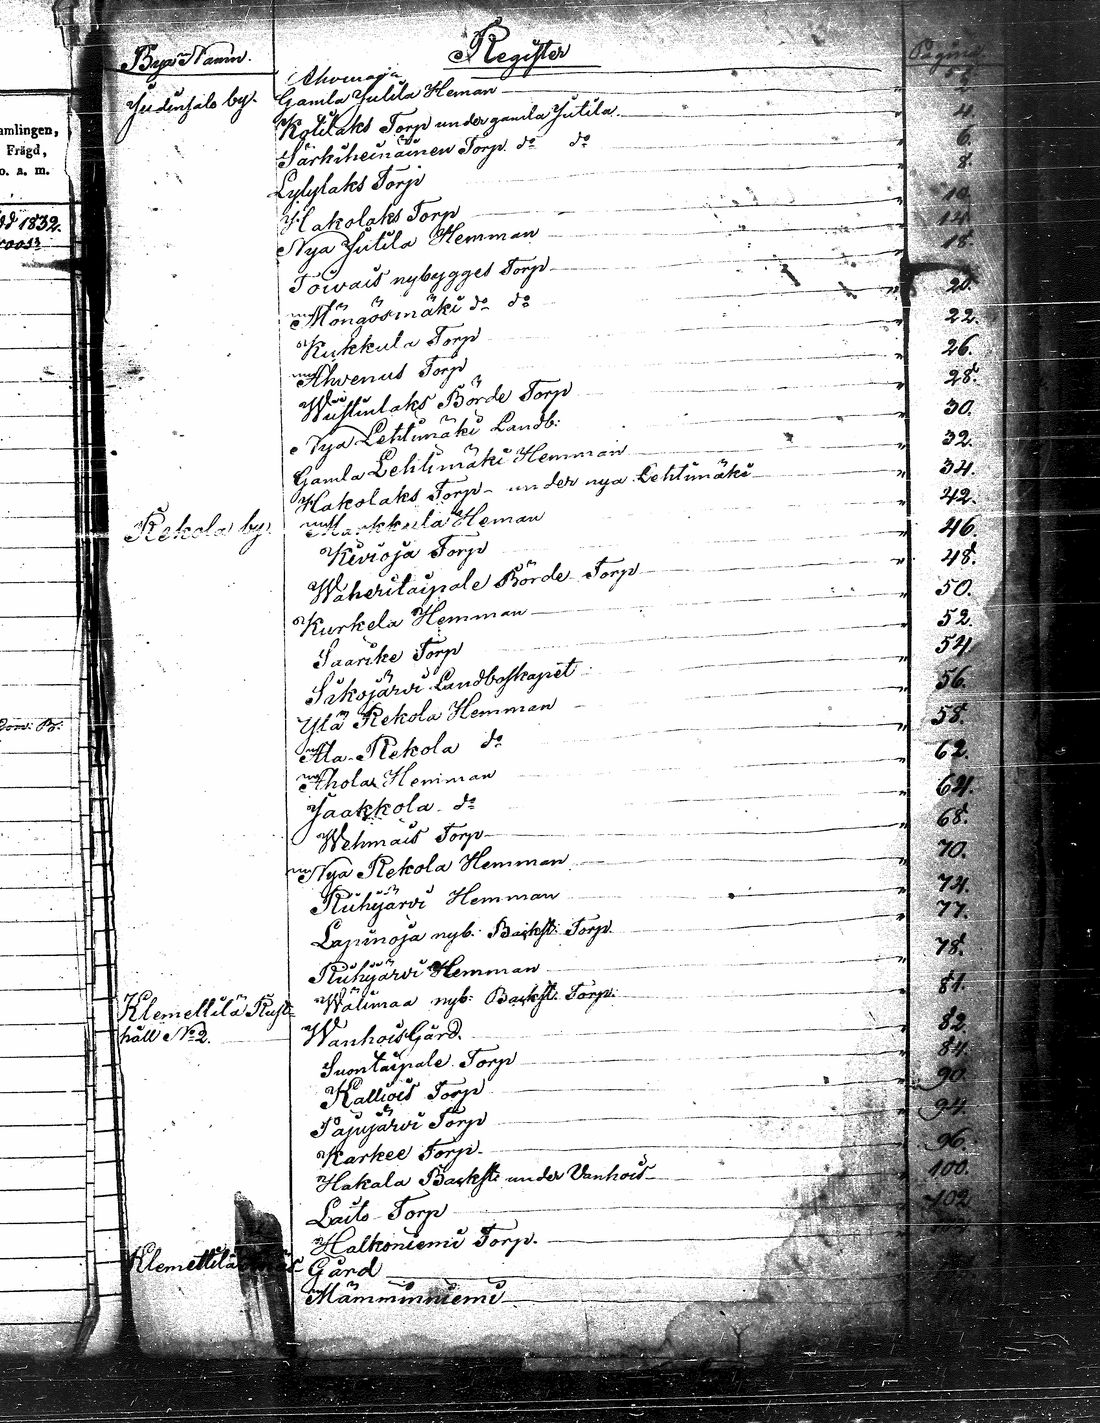 amlingen,
Frägd,
o. a. m.
1832.
Bya Namn.
Register
Ahvenoja
Judinsalo by.
Gamla Jutila Heman 2
Kotilaks Torp under gamla Jutila. 4.
Särkiheinäinen Torp do do 6.
Lylylaks Torp 8.
Hakolaks Torp 10.
Nya Jutila Hemman 14.
Toivais nybygges Torp 18.
Möngösmäki do do 20.
Kukkula Torp 22.
Ahvenus Torp 26.
Wustinlaks Börde Torp 28.
Nya Lehtimäki Landb: 30.
Gamla Lehtimäki Hemman 32.
Hakolaks Torp under nya Lehtimäki 34.
Rekola by. Markkula Heman 42.
Kivioja Torp 46.
Waheritaipale Börde Torp 48.
Kurkela Hemman 50.
Saarike Torp 52.
Sikojärvi Landboskapet 54
Ylä Rekola Hemman 56.
Ala Rekola do 58.
Ahola Hemman 62.
Jaakkola do 64.
Wehmais Torp 68.
Nya Rekola Hemman 70.
Ruhijärvi Hemman 74.
Lapinoja nyb: Backst: Torp 77.
Ruhijärvi Hemman 78.
Klemettilä Rust-
Wälimaa nyb: Backst: Torp: 81.
håll No 2. Wanhois Gård. 82.
Suontaipale Torp 84.
Kalliois Torp 90.
Pajujärvi Torp 94.
Karkee Torp 96.
Hakala Backst: under Vanhois 100.
Laito Torp 102
Halkoniemi Torp.
Klemettilä
Gård
Mämminniemi